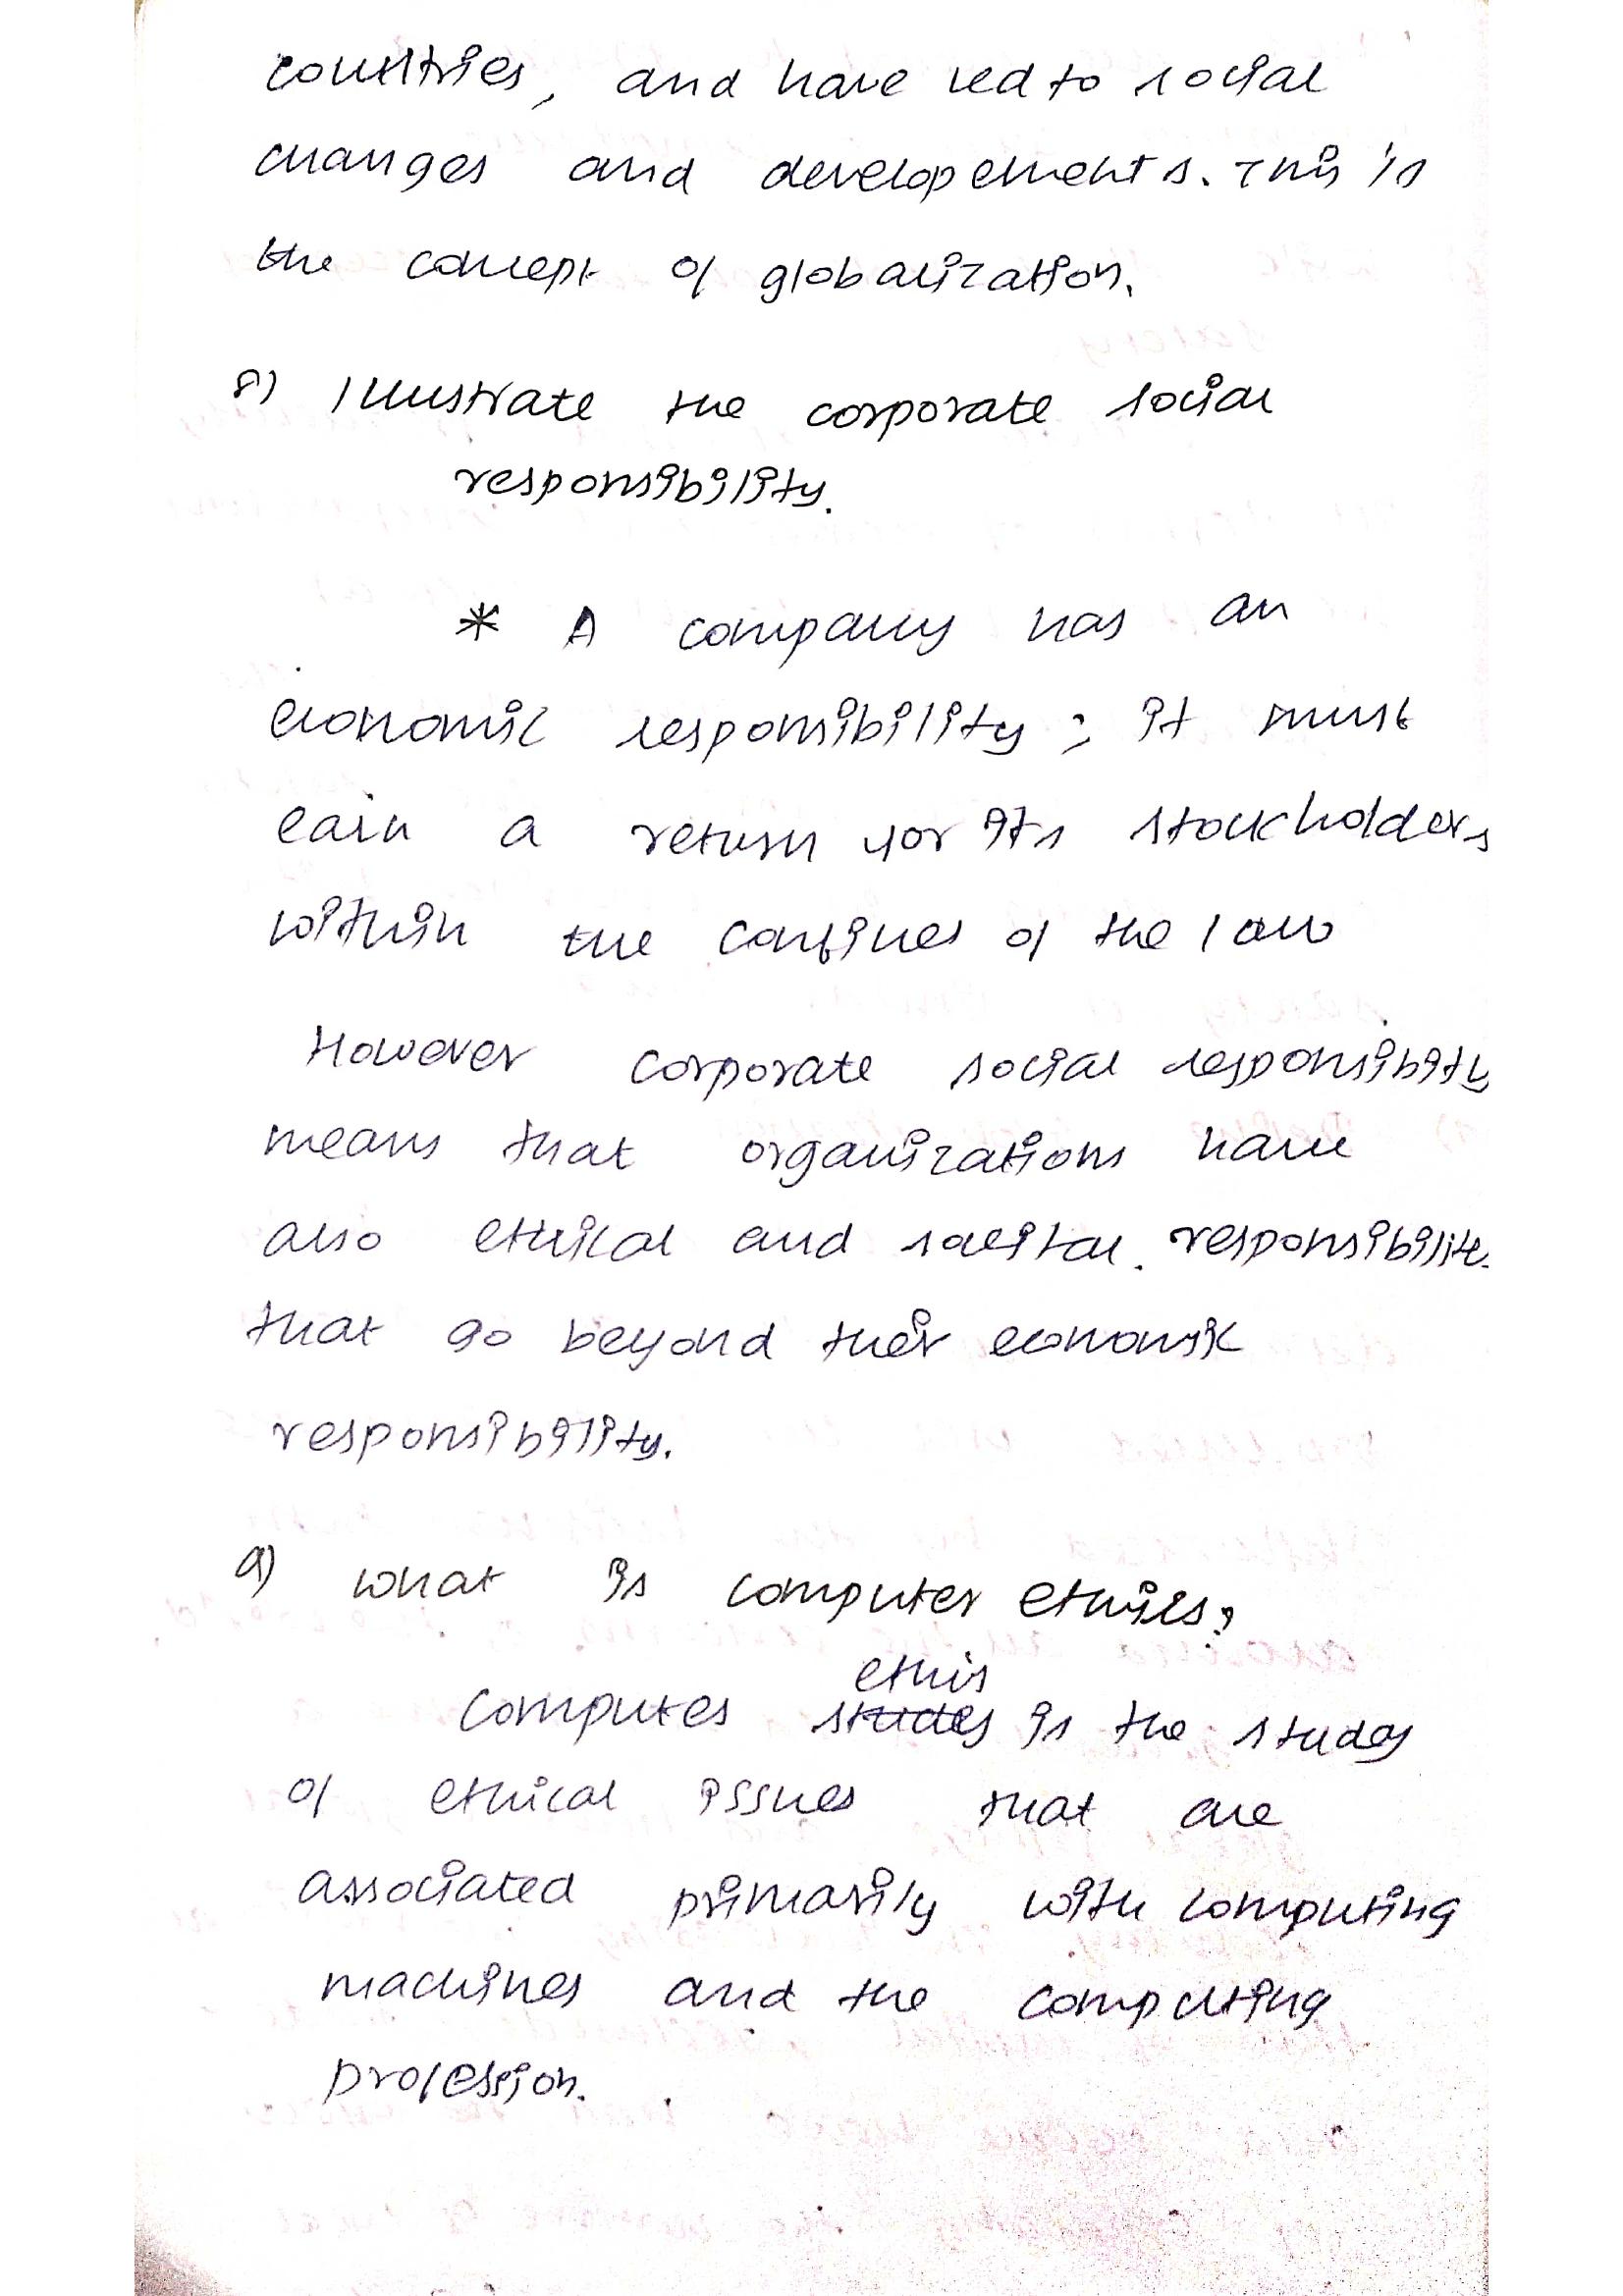 countries, and have led to social
changes and developements. This is
the concept of globalization.
8) Illustrate the corporate social
responsibility.
* A company has an
economic responsibility; it must
earn a return for its stockholders
within the confines of the law
However corporate social responsibity
means that organizations have
also ethical and societal responsibilite
that go beyond their economic
responsibility.
9) What is computer ethics?
ethis
Computes studey is the study
of ethical issues that are
associated primarily with computing
machines and the computing
profession.